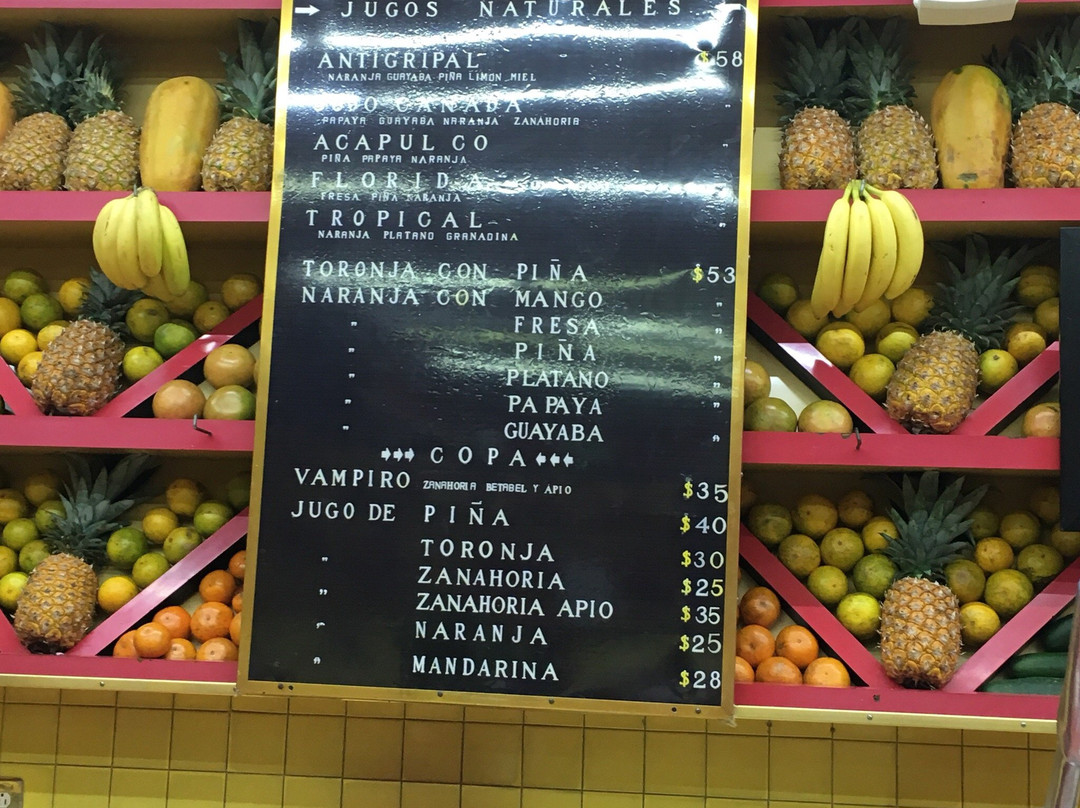 JUGOS NATURALES
ANTIGRIPAL $58
NARANJA GUAYABA PIÑA LIMON MIEL
CANADA "
PAPAYA GUAYABA NARANJA ZANAHORIA
ACAPULCO "
PIÑA PAPAYA NARANJA
FLORIDA
FRESA PIÑA NARANJA
TROPICAL "
NARANJA PLATANO GRANADINA
TORONJA CON PIÑA $53
NARANJA CON MANGO "
" FRESA "
" PIÑA "
" PLATANO "
" PAPAYA "
" GUAYABA "
COPA
VAMPIRO ZANAHORIA BETABEL Y APIO $35
JUGO DE PIÑA $40
" TORONJA $30
ZANAHORIA $25
" ZANAHORIA APIO $35
" NARANJA $25
" MANDARINA $28